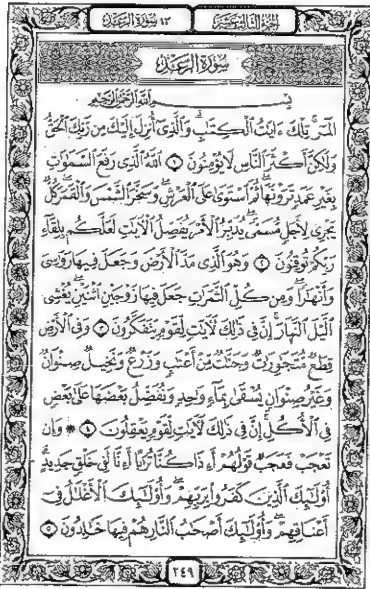 الجزء الثالث عشر
١٣ سورة الرعد
سورة الرعد
بسم الله الرحمن الرحيم
الٓمٓر ۚ تِلْكَ ءَايَٰتُ ٱلْكِتَٰبِ ۗ وَٱلَّذِىٓ أُنزِلَ إِلَيْكَ مِن رَّبِّكَ ٱلْحَقُّ
وَلَٰكِنَّ أَكْثَرَ ٱلنَّاسِ لَا يُؤْمِنُونَ ١ ٱللَّهُ ٱلَّذِى رَفَعَ ٱلسَّمَٰوَٰتِ
بِغَيْرِ عَمَدٍ تَرَوْنَهَا ۖ ثُمَّ ٱسْتَوَىٰ عَلَى ٱلْعَرْشِ ۖ وَسَخَّرَ ٱلشَّمْسَ وَٱلْقَمَرَ ۖ كُلٌّ
يَجْرِى لِأَجَلٍ مُّسَمًّى ۚ يُدَبِّرُ ٱلْأَمْرَ يُفَصِّلُ ٱلْءَايَٰتِ لَعَلَّكُم بِلِقَآءِ
رَبِّكُمْ تُوقِنُونَ ٢ وَهُوَ ٱلَّذِى مَدَّ ٱلْأَرْضَ وَجَعَلَ فِيهَا رَوَٰسِىَ
وَأَنْهَٰرًا ۖ وَمِن كُلِّ ٱلثَّمَرَٰتِ جَعَلَ فِيهَا زَوْجَيْنِ ٱثْنَيْنِ ۖ يُغْشِى
ٱلَّيْلَ ٱلنَّهَارَ ۚ إِنَّ فِى ذَٰلِكَ لَءَايَٰتٍ لِّقَوْمٍ يَتَفَكَّرُونَ ٣ وَفِى ٱلْأَرْضِ
قِطَعٌ مُّتَجَٰوِرَٰتٌ وَجَنَّٰتٌ مِّنْ أَعْنَٰبٍ وَزَرْعٌ وَنَخِيلٌ صِنْوَانٌ
وَغَيْرُ صِنْوَانٍ يُسْقَىٰ بِمَآءٍ وَٰحِدٍ وَنُفَضِّلُ بَعْضَهَا عَلَىٰ بَعْضٍ
فِى ٱلْأُكُلِ ۚ إِنَّ فِى ذَٰلِكَ لَءَايَٰتٍ لِّقَوْمٍ يَعْقِلُونَ ٤ ۞ وَإِن
تَعْجَبْ فَعَجَبٌ قَوْلُهُمْ أَءِذَا كُنَّا تُرَٰبًا أَءِنَّا لَفِى خَلْقٍ جَدِيدٍ ۗ
أُو۟لَٰٓئِكَ ٱلَّذِينَ كَفَرُوا۟ بِرَبِّهِمْ ۖ وَأُو۟لَٰٓئِكَ ٱلْأَغْلَٰلُ فِىٓ
أَعْنَاقِهِمْ ۖ وَأُو۟لَٰٓئِكَ أَصْحَٰبُ ٱلنَّارِ ۖ هُمْ فِيهَا خَٰلِدُونَ ٥
٢٤٩